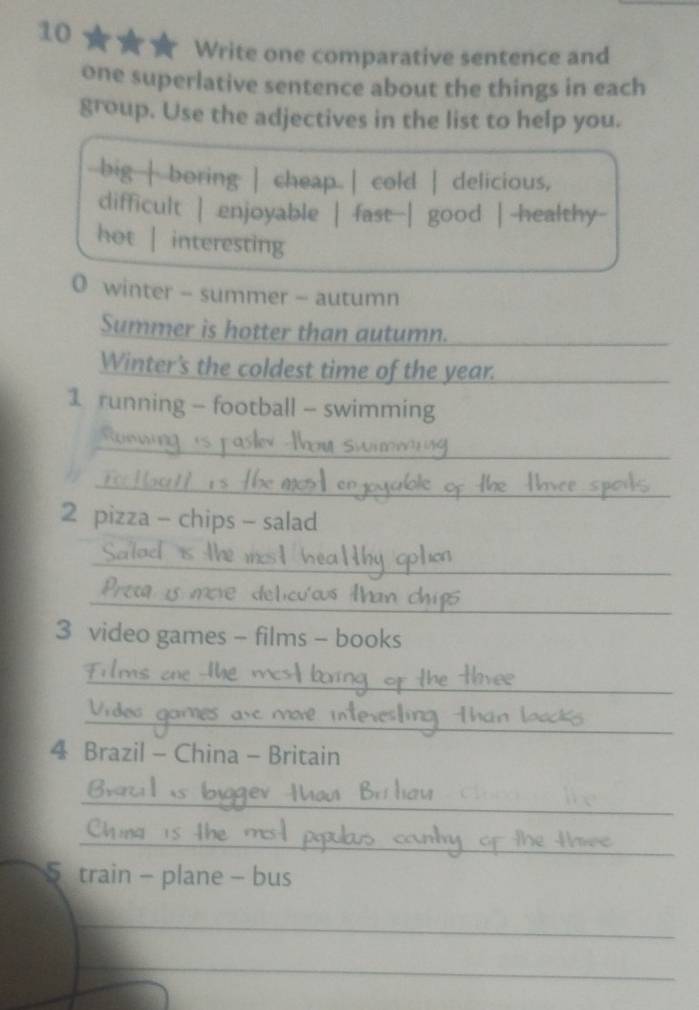 10 ★★★ Write one comparative sentence and
one superlative sentence about the things in each
group. Use the adjectives in the list to help you.
big | boring | cheap | cold | delicious,
difficult | enjoyable | fast | good | healthy
hot | interesting
0 winter – summer – autumn
Summer is hotter than autumn.
Winter's the coldest time of the year.
1 running – football – swimming
Running is faster than swimming
Football is the most enjoyable of the three sports
2 pizza – chips – salad
Salad is the most healthy option
is more delicious than chips
3 video games – films – books
Films are the most boring of the three
Video games are more interesting than books
4 Brazil – China – Britain
Brazil is bigger than
China is the most country of the three
5 train – plane – bus